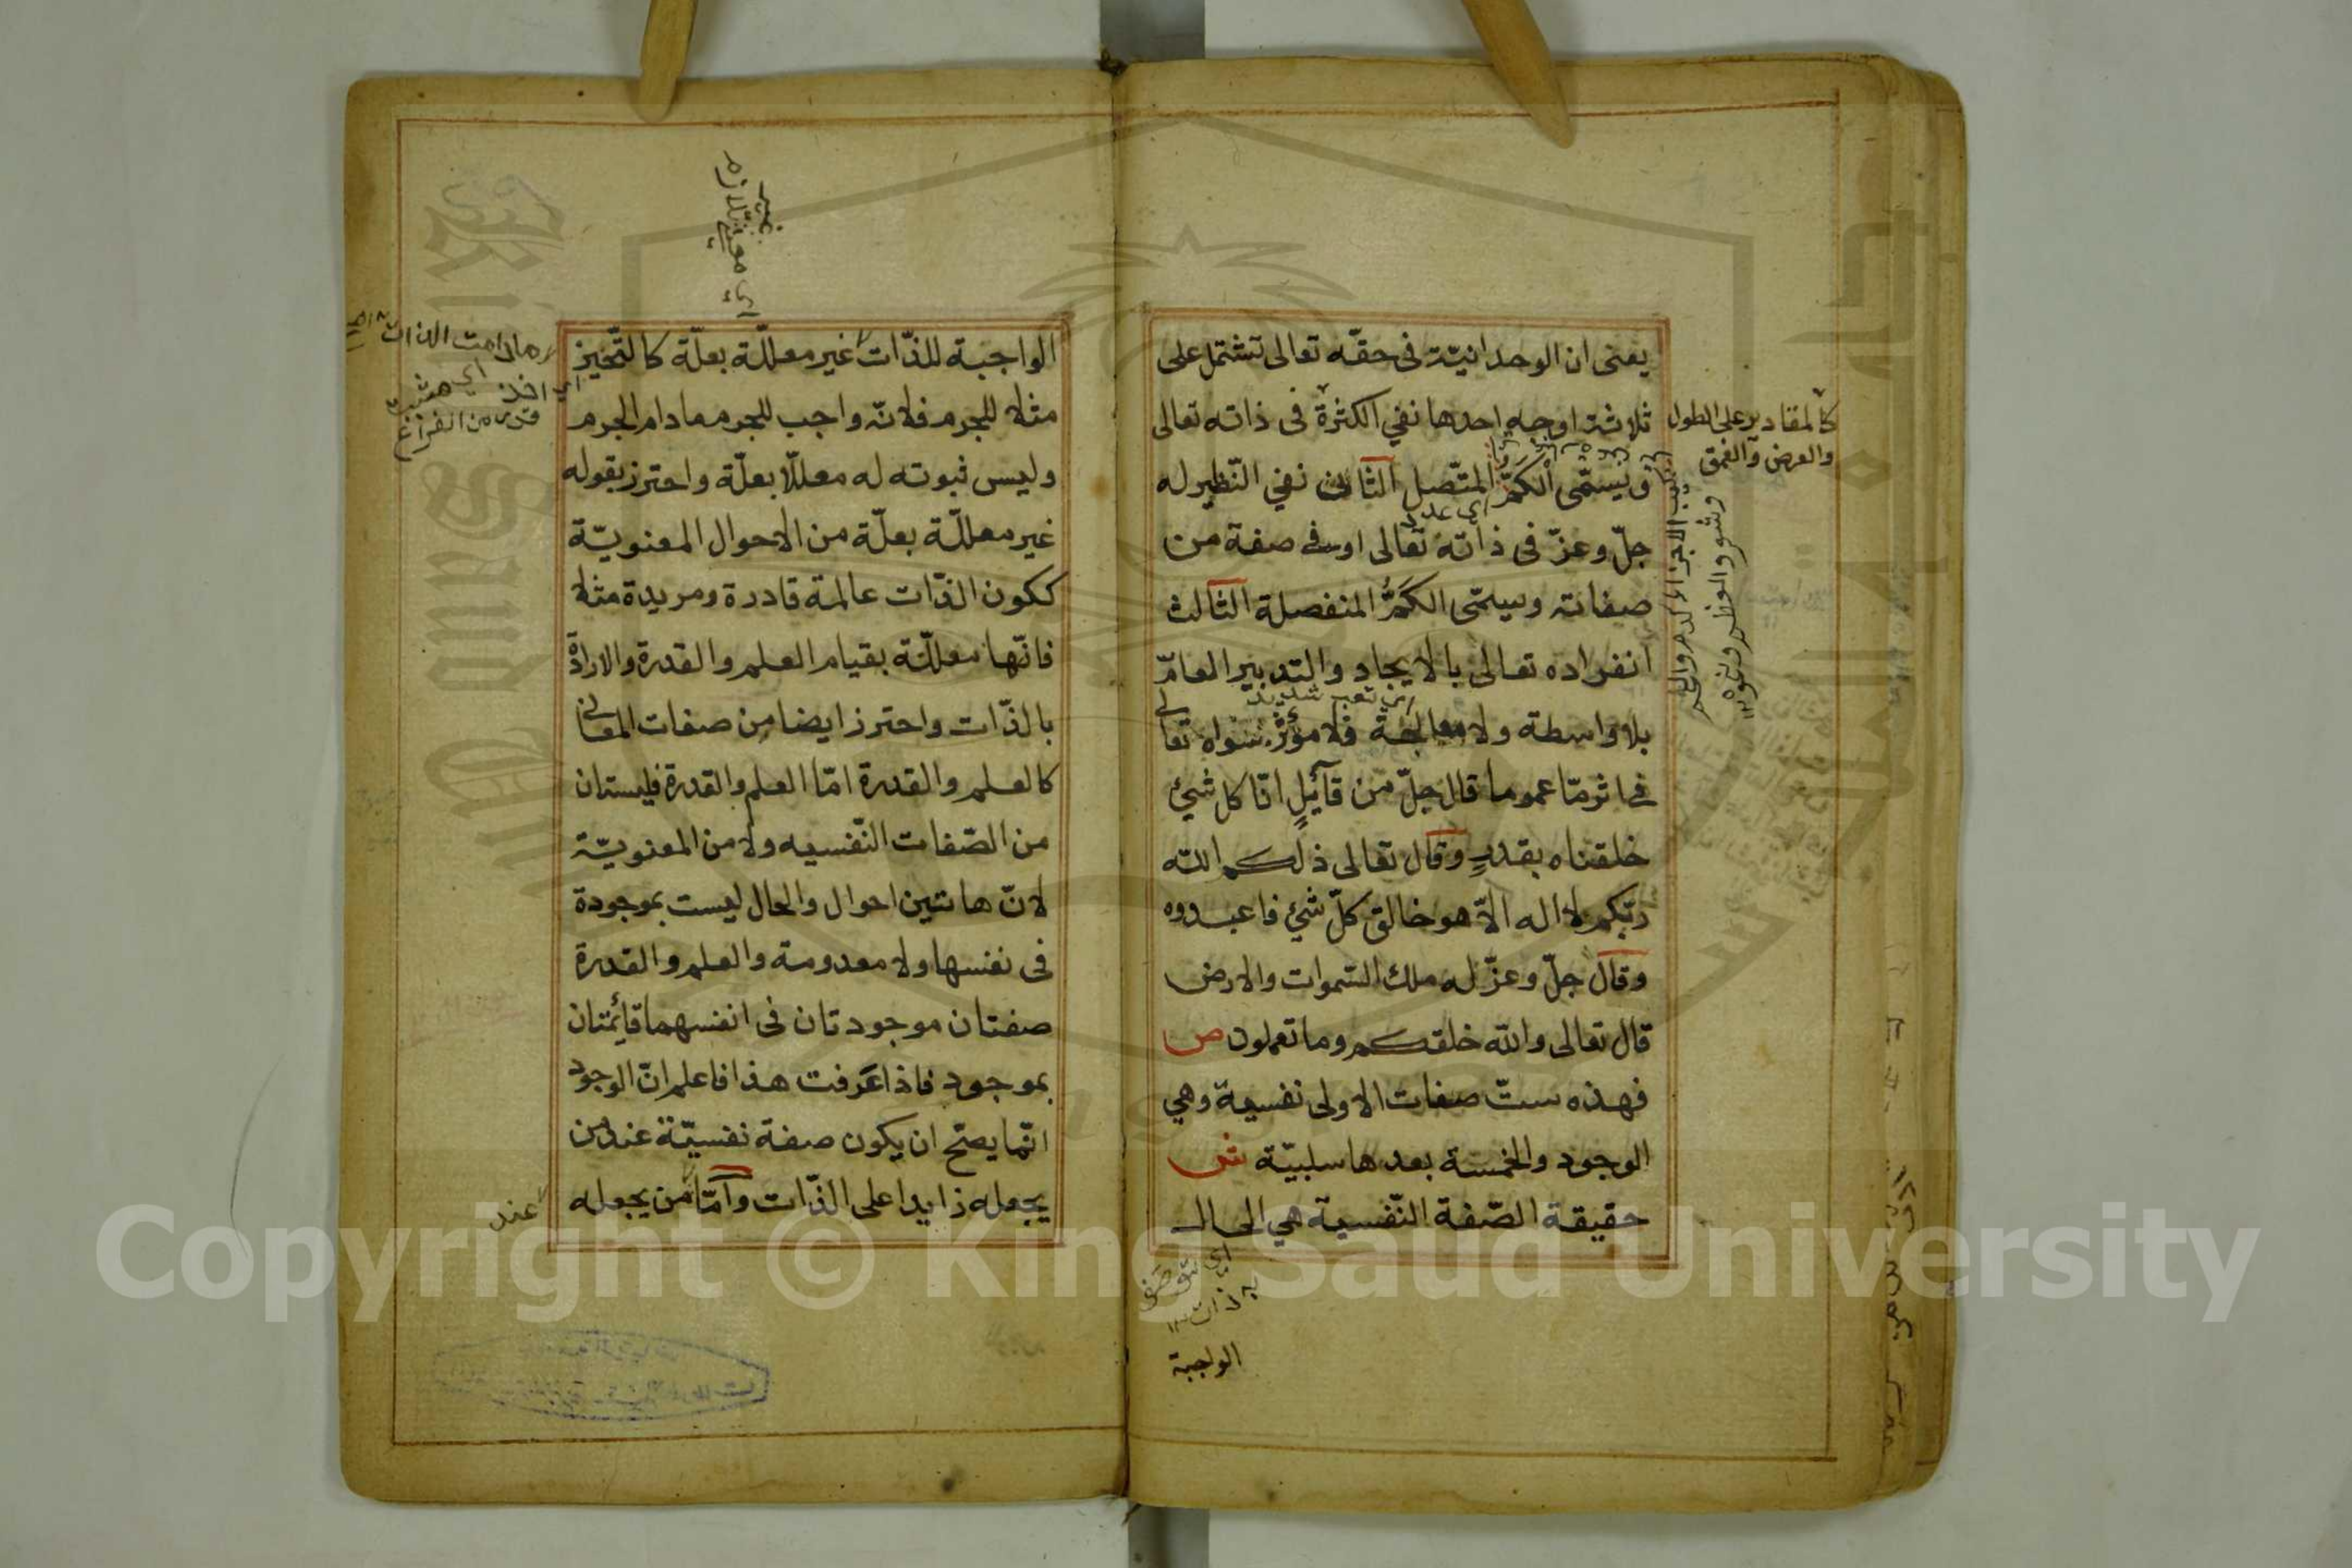 يعنى ان الوحدانيّة فى حقّه تعالى تشتمل على
ثلاثة اوجه احدها نفي الكثرة فى ذاته تعالى
ويسمّى الكمّ المتّصل الثانى نفي النّظير له
جلّ وعزّ فى ذاته تعالى او فى صفة من
صفاته ويسمّى الكمّ المنفصلة الثالث
انفراده تعالى بالايجاد والتدبير العامّ
بلا واسطة ولا معالجة فلا مؤثّر سواه تعالى
فى اثر مّا عموما قال جلّ من قآئلٍ انّا كل شئ
خلقناه بقدرٍ وقال تعالى ذلكم الله
ربّكم لا اله الّا هو خالق كلّ شئ فاعبدوه
وقال جلّ وعزّ له ملك السّموات والارض
قال تعالى والله خلقكم وما تعملون ص
فهذه ستّ صفات الاولى نفسية وهي
الوجود والخمسة بعدها سلبيّة ش
حقيقة الصّفة النّفسية هي الحال
الواجبة
كالمقادير على الطول
والعرض والعمق
اي عدد
اي تعب شديد
الواجبة للذّات غير معلّلة بعلّة كالتّحيز
مثلا للجرم فانّه واجب للجرم مادام الجرم
وليس ثبوته له معلّلا بعلّة واحترز بقوله
غير معلّلة بعلّة من الاحوال المعنويّة
ككون الذّات عالمة قادرة ومريدة مثلا
فانّها معلّلة بقيام العلم والقدرة والارادة
بالذّات واحترز ايضا من صفات المعانى
كالعلم والقدرة امّا العلم والقدرة فليستان
من الصّفات النّفسيه ولا من المعنويّة
لانّ هاتين احوال والحال ليست بموجودة
فى نفسها ولا معدومة والعلم والقدرة
صفتان موجودتان فى انفسهما قائمتان
بموجود فاذا عرفت هذا فاعلم انّ الوجود
انّما يصحّ ان يكون صفة نفسيّة عند من
يجعله زايدا على الذّات وامّا من يجعله
عند
مادامت الذات
قدره من الفراغ
Copyright © King Saud University